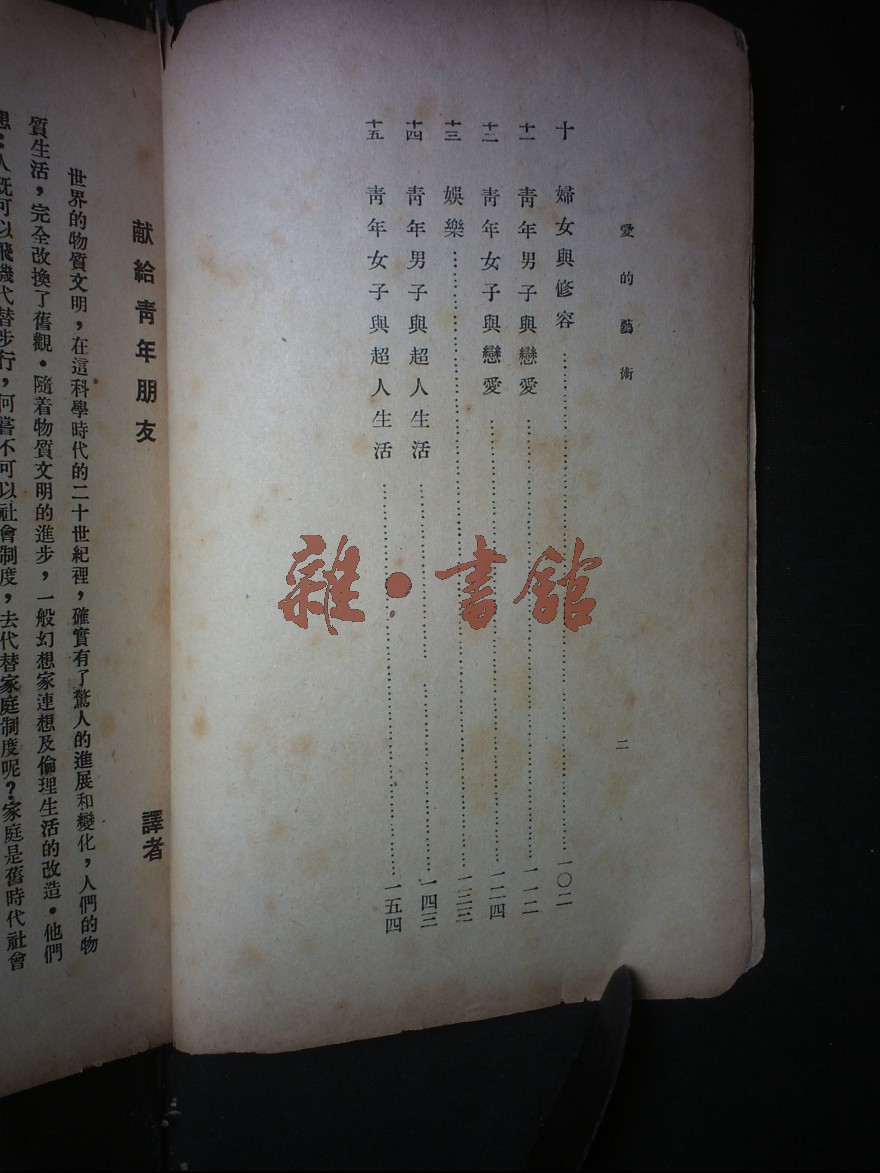 愛的藝術
二
十 婦女與修容……一〇二
十一 青年男子與戀愛……一一二
十二 青年女子與戀愛……一二四
十三 娛樂……一三三
十四 青年男子與超人生活……一四三
十五 青年女子與超人生活……一五四
雜·書館
献給青年朋友
譯者
世界的物質文明，在這科學時代的二十世紀裡，確實有了驚人的進展和變化，人們的物
質生活，完全改換了舊觀。隨着物質文明的進步，一般幻想家連想及倫理生活的改造。他們
想：人既可以飛機代替步行，何嘗不可以社會制度，去代替家庭制度呢？家庭是舊時代社會